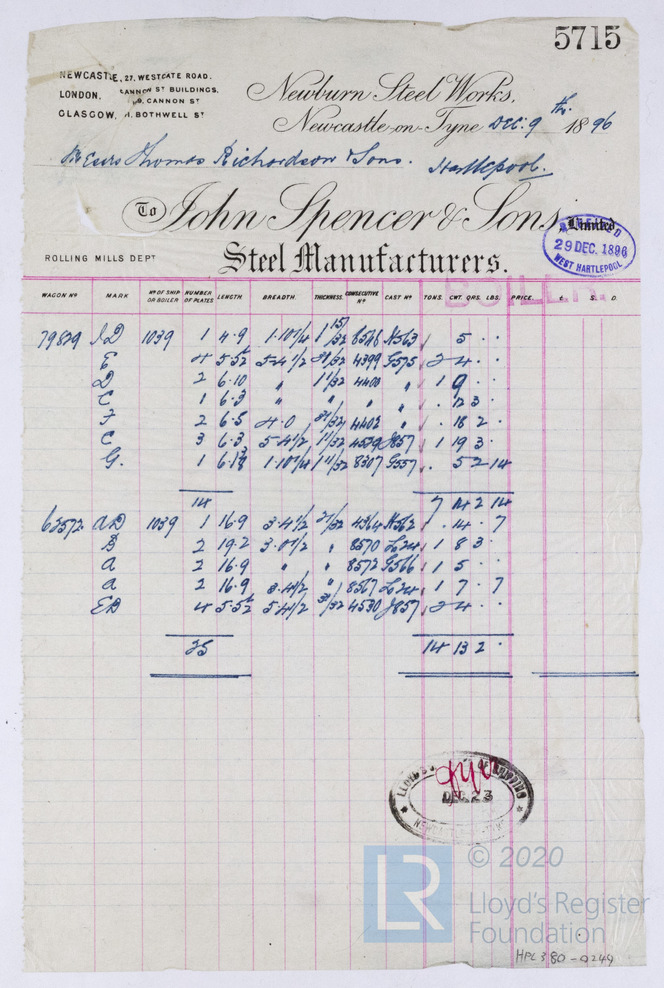 5715
NEWCASTLE, 27, WESTGATE ROAD.
LONDON, CANNON ST BUILDINGS,
CANNON ST
GLASGOW, BOTHWELL ST
Newburn Steel Works,
Newcastle-on-Tyne Dec. 9th 1896
Messrs Thomas Richardson & Sons. Hartlepool.
To John Spencer & Sons, Limited
Steel Manufacturers.
ROLLING MILLS DEPT
29 DEC. 1896
WEST HARTLEPOOL
BOILER
WAGON No MARK No OF SHIP OR BOILER NUMBER OF PLATES LENGTH. BREADTH. THICKNESS. CONSECUTIVE No CAST No TONS. CWT. QRS. LBS. PRICE. £ S. D.
79829 1039 1 4.9 1.10 1/4 1 11/32 H563 1 5 . .
E 4 5.5 5.4 1/2 4399 G575 2 4 . .
D 2 6.10 " 1 11/32 4400 " 1 9 . .
C 1 6.3 " " " . 12 3 .
F 2 6.5 4.0 4402 " . 18 2 .
C 3 6.3 5.4 1/2 1 11/32 4529 J857 1 19 3 .
G. 1 1 11/32 8307 G557 . 5 2 14
14 7 14 2 14
63572 AD 1039 1 16.9 3.4 1/2 4364 H562 . 14 . 7
B 2 19.2 3.0 1/2 " 8570 L24 1 8 3 .
A 2 16.9 " " 8572 G566 1 5 . .
A 2 16.9 3.4 1/2 " 8567 L24 1 7 . 7
ED 4 5.5 5.4 1/2 4530 J857 2 4 . .
25 14 13 2 .
LLOYD'S OF SHIPPING
DEC. 23
LR
© 2020
Lloyd's Register
Foundation
HPL380-0249